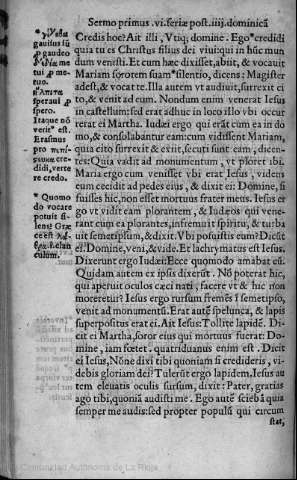 Sermo primus .vi. feriæ post .iiij. dominicã
Credis hoc? Ait illi, Vtiq; domine. Ego° credidi
quia tu es Christus filius dei viui: qui in hũc mun
dum venisti. Et cum hæc dixisset, abiit, & vocauit
Mariam sororem suam* silentio, dicens: Magister
adest, & vocat te. Illa autem vt audiuit, surrexit ci
to, & venit ad eum. Nondum enim venerat Iesus
in castellum: sed erat adhuc in loco illo vbi occur
rerat ei Martha. Iudæi ergo qui erãt cum ea in do
mo, & consolabantur eam: cum vidissent Mariam,
quia cito surrexit & exiit, secuti sunt eam, dicen-
tes: Quia vadit ad monumentum, vt ploret ibi.
Maria ergo cum venisset vbi erat Iesus, videns
eum cecidit ad pedes eius, & dixit ei: Domine, si
fuisses hic, non esset mortuus frater meus. Iesus er
go vt vidit eam plorantem, & Iudæos qui vene-
rant cum ea plorantes, infremuit spiritu, & turba
uit semetipsum, & dixit: Vbi posuistis eum? Dicũt
ei, Domine, veni, & vide. Et lachrymatus est Iesus.
Dixerunt ergo Iudæi: Ecce quomodo amabat eũ.
Quidam autem ex ipsis dixerũt. Nõ poterat hic,
qui aperuit oculos cæci nati, facere vt & hic non
moreretur? Iesus ergo rursum fremẽs ĩ semetipso,
venit ad monumentũ. Erat autẽ spelunca, & lapis
superpositus erat ei. Ait Iesus: Tollite lapidẽ. Di-
cit ei Martha, soror eius qui mortuus fuerat: Do-
mine, iam fœtet. quatriduanus enim est. Dicit
ei Iesus, Nõne dixi tibi quoniam si credideris, vi-
debis gloriam dei? Tulerũt ergo lapidem. Iesus au
tem eleuatis oculis sursum, dixit: Pater, gratias
ago tibi, quoniã audisti me. Ego autẽ sciebã quia
semper me audis: sed propter populũ qui circum
stat,
gauisus sũ
p gaudeo
me
tui p me-
tuo.
speraui p
spero.
Itaque nõ
verit° est.
Erasmus
pro
cre-
didi, verte
te credo.
* Quomo
do vocare
potuit si-
lens? Græ
ce est
clan
culum.
Comunidad Autónoma de La Rioja